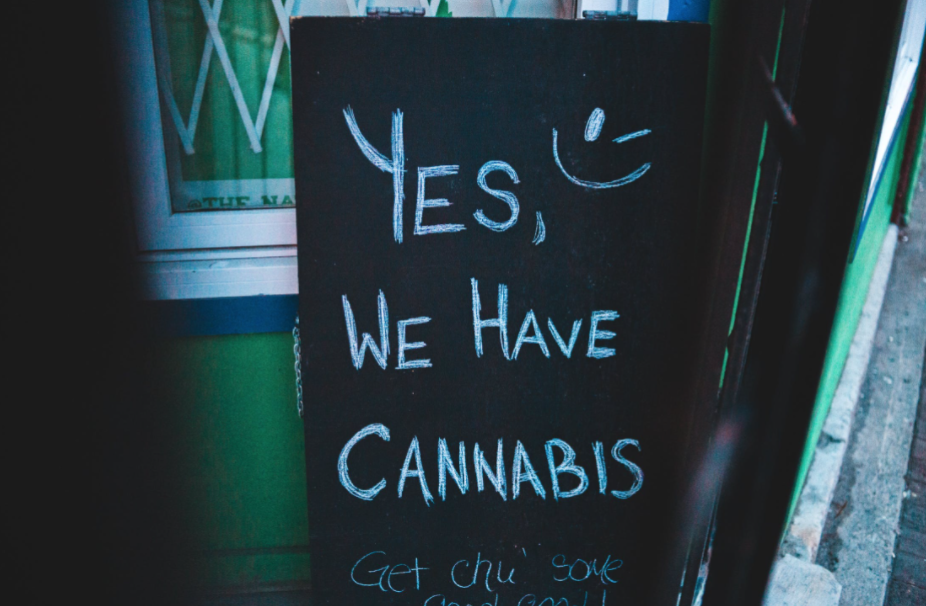 THE NA
YES,
WE HAVE
CANNABIS
Get chu' some